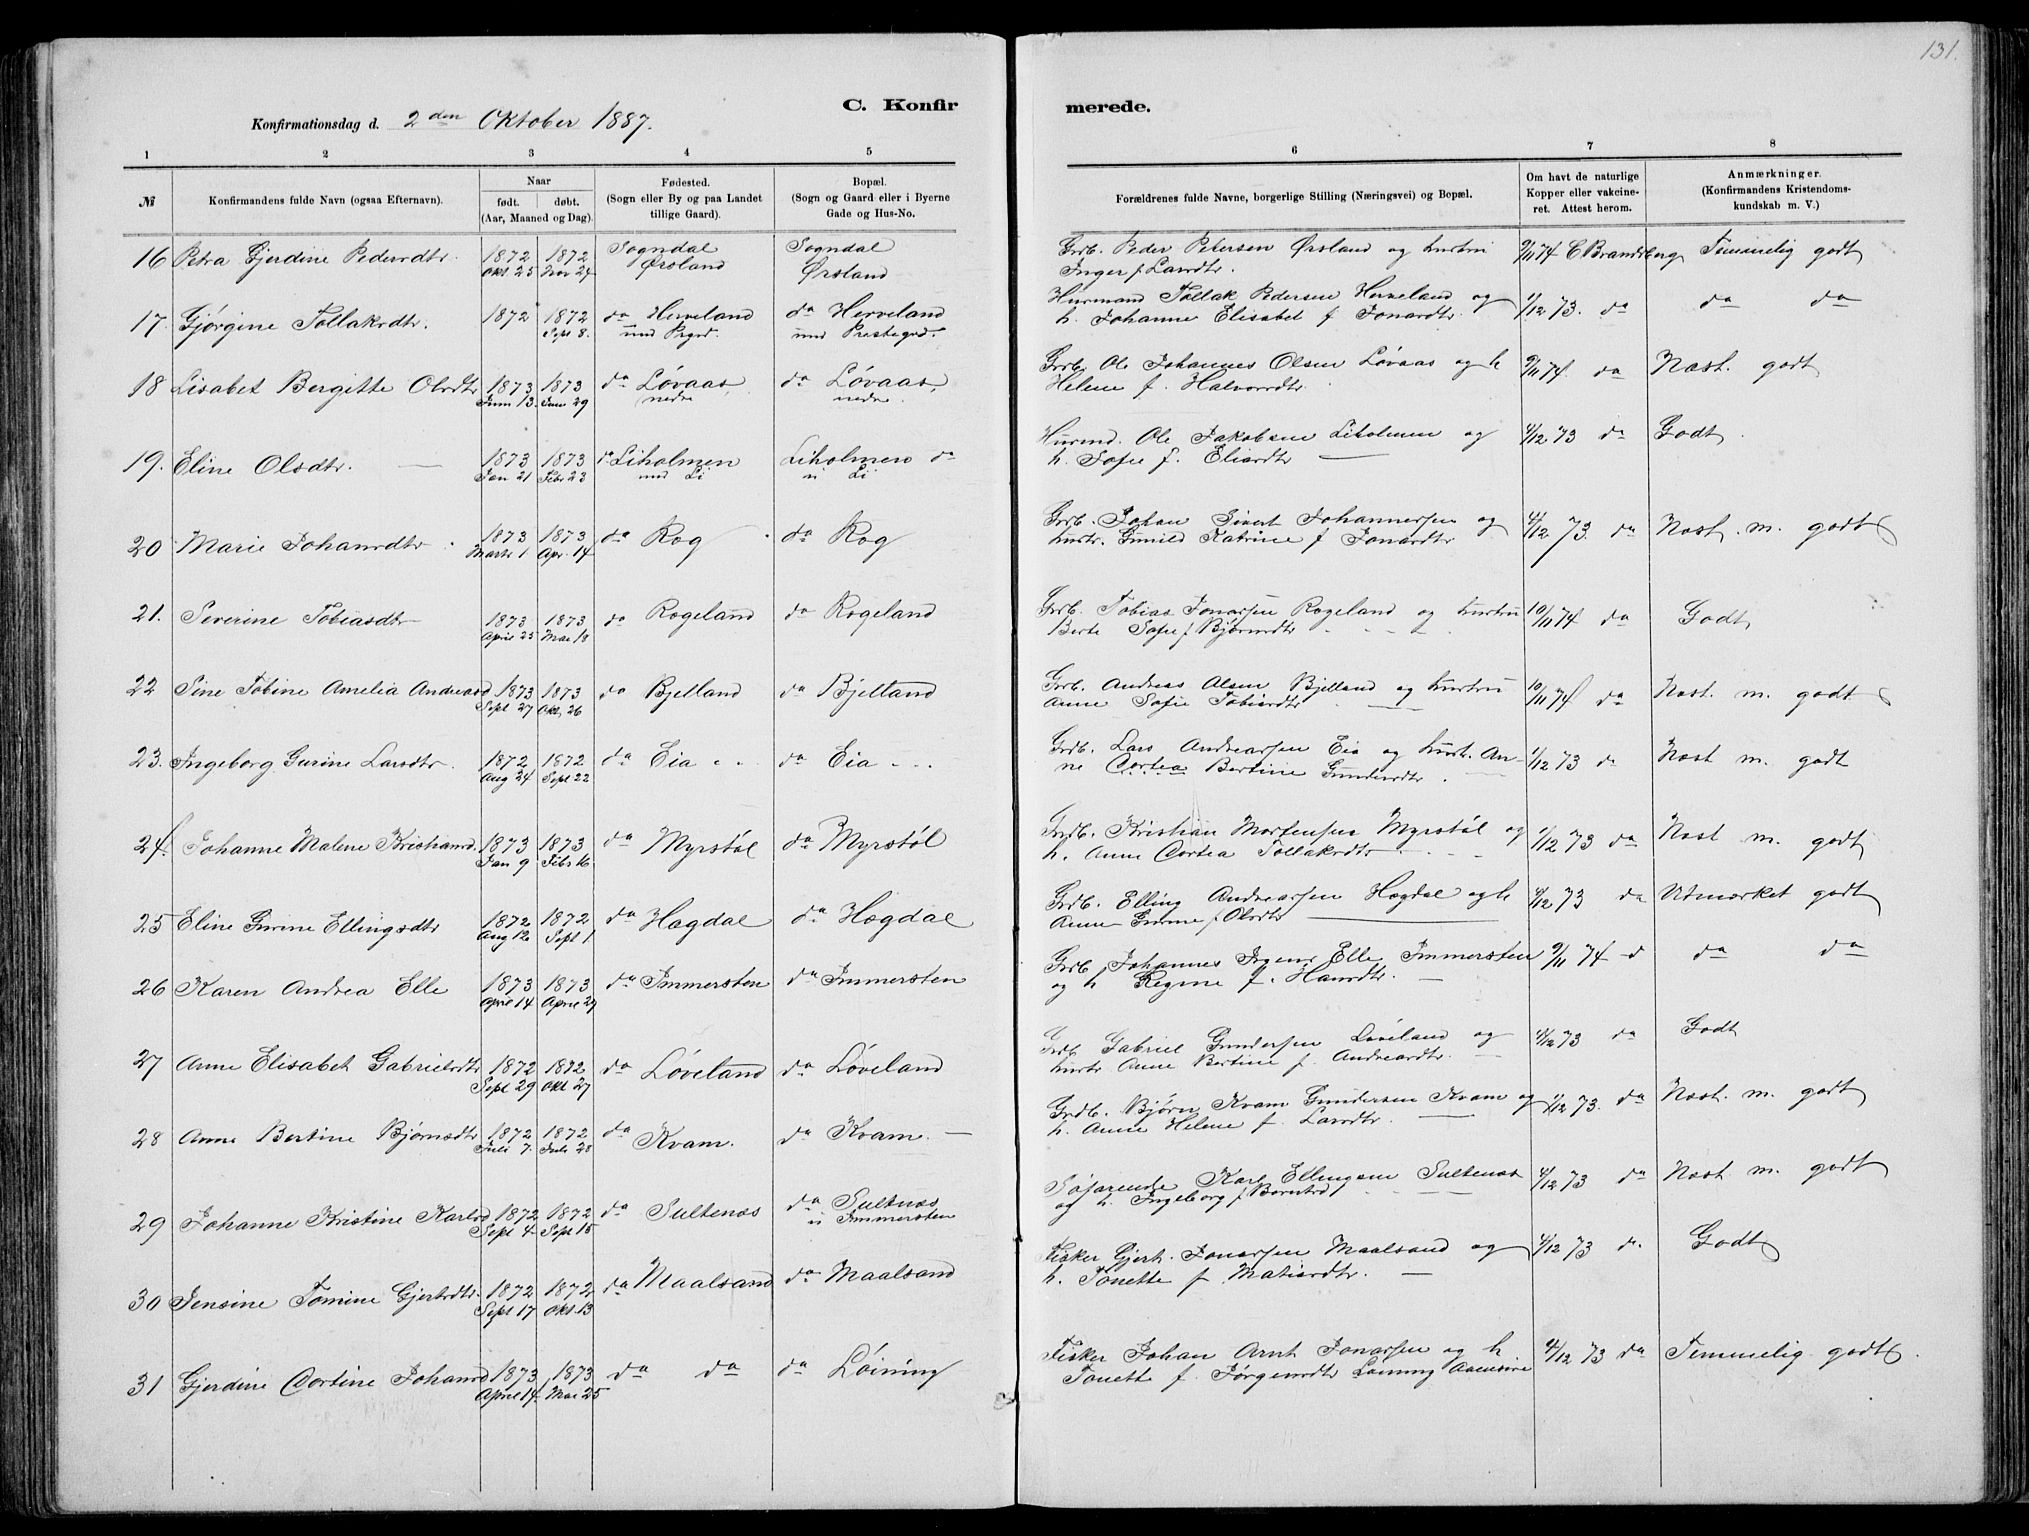 131.
C. Konfirmerede.
Konfirmationsdag d. 2den Oktober 1887.
1 2 3 4 5 6 7 8
№
Konfirmandens fulde Navn (ogsaa Efternavn).
Naar
født. døbt.
(Aar, Maaned og Dag).
Fødested.
(Sogn eller By og paa Landet
tillige Gaard).
Bopæl.
(Sogn og Gaard eller i Byerne
Gade og Hus-No.
Forældrenes fulde Navne, borgerlige Stilling (Næringsvei) og Bopæl.
Om havt de naturlige
Kopper eller vakcine-
ret. Attest herom.
Anmærkninger.
(Konfirmandens Kristendoms-
kundskab m. V.)
16 Petra Gjerdine Pedersdtr. 1872 1872 Sogndal Sogndal Grdb. Peder Petersen Ørsland og hustru 9/11 74 C Brandsberg Temmelig godt
Okt 25 Nov 24 Ørsland Ørsland Inger f Larsdtr.
17. Gjørgine Tollaksdtr. 1872 1872 da Herveland da Herveland Husmand Tollak Pedersen Herveland og 1/12 73. da da da
Sept 8. und Prgrd. und Prestegrd. h. Johanne Elisabet f Jonasdtr.
18 Lisabet Bergitte Olsdtr 1873 1873 da Løvaas, da Løvaas, Grdb. Ole Johannes Olsen Løvaas og h 9/11 74. da Næst. godt
Juni 13. Juni 29 nedre nedre. Helene f. Halvorsdtr.
19. Eline Olsdtr. 1873 1873 da Liholmen Liholmen da Husmd. Ole Jakobsen Liholmen og 4/12 73 da Godt.
Jan 21 Febr 23 und Li u Li h. Sofie f. Eliasdtr
20 Marie Johansdtr 1873 1873 da Rog da Rog Grdb. Johan Sivert Johannessen og 4/12 73. da Næst. m. godt
Marts 1 Apr. 14 hustr. Gunild Katrine f Jonasdtr
21. Severine Tobiasdtr 1873 1873 da Rogeland da Rogeland Grdb. Tobias Jonassen Rogeland og hustru 10/11 74 da Godt
April 25 Mai 18 Berte Sofie f Bjørnsdtr
22 Sine Tobine Amelia Andreasd 1873 1873 da Bjelland da Bjelland Grb. Andreas Olsen Bjelland og hustru 10/11 74 da Næst. m. godt
Sept 27 Okt. 26 Anne Sofie Tobiasdtr
23. Ingeborg Gurine Larsdtr. 1872 1872 da Eia da Eia Grdb. Lars Andreassen Eia og hust. An- 1/12 73 da Næst m. godt
Aug 24 Sept 22 ne Cortea Bertine Gundersdtr.
24. Johanne Malene Kristiansd. 1873 1873 da Myrstøl da Myrstøl Grdb. Kristian Mortensen Myrstøl og 1/12 73 da Næst m. godt
Jan 9 Febr 16 h. Anne Cortea Tollaksdtr
25 Eline Gurine Ellingsdtr 1872 1872 da Hægdal da Hægdal Grdb. Elling Andreassen Hægdal og h 4/12 73 da Udmærket godt
Aug 12 Sept 1 Anne Gurine f Olsdtr
26 Karen Andrea Elle 1873 1873 da Immersten da Immersten Grdb Johannes Irgens Elle Immersten 9/11 74 d da da
April 14 April 27 og h Regine f. Hansdtr.
27 Anne Elisabet Gabrielsdtr 1872 1872 da Løveland da Løveland Grdb. Gabriel Gundersen Løveland og 4/12 73 da Godt
Sept 29 Okt 27 hustr Anne Bertine f. Andreasdtr.
28 Anne Bertine Bjørnsdtr 1872 1872 da Kvam. da Kvam. Grdb. Bjørn Kvam Gundersen Kvam og 1/12 73. da Næst. m. godt
Juli 7. Juli 28 h. Anne Helene f. Larsdtr.
29 Johanne Kristine Karlsd 1872 1872 da Sultenæs da Sultnæs Søfarende Karl Ellingsen Sultenæs 4/12 73 da Næst m. godt
Sept 4. Sept 15 u Immersten og h. Ingeborg f.
30 Jensine Tomine Gjertsdtr. 1872 1872 da Maalsand da Maalsand Fisker Gjert. Jonassen Maalsand og 4/12 73 da Godt
Sept 17 Okt. 13 h. Tonette f Matiasdtr.
31 Gjerdine Cortine Johansd 1873 1873 da da da Løining Fisker Johan Arnt Jonassen og h. 4/12 73 da Temmelig godt.
April 14. Mai 25 Tonette f. Jørgensdtr Løining